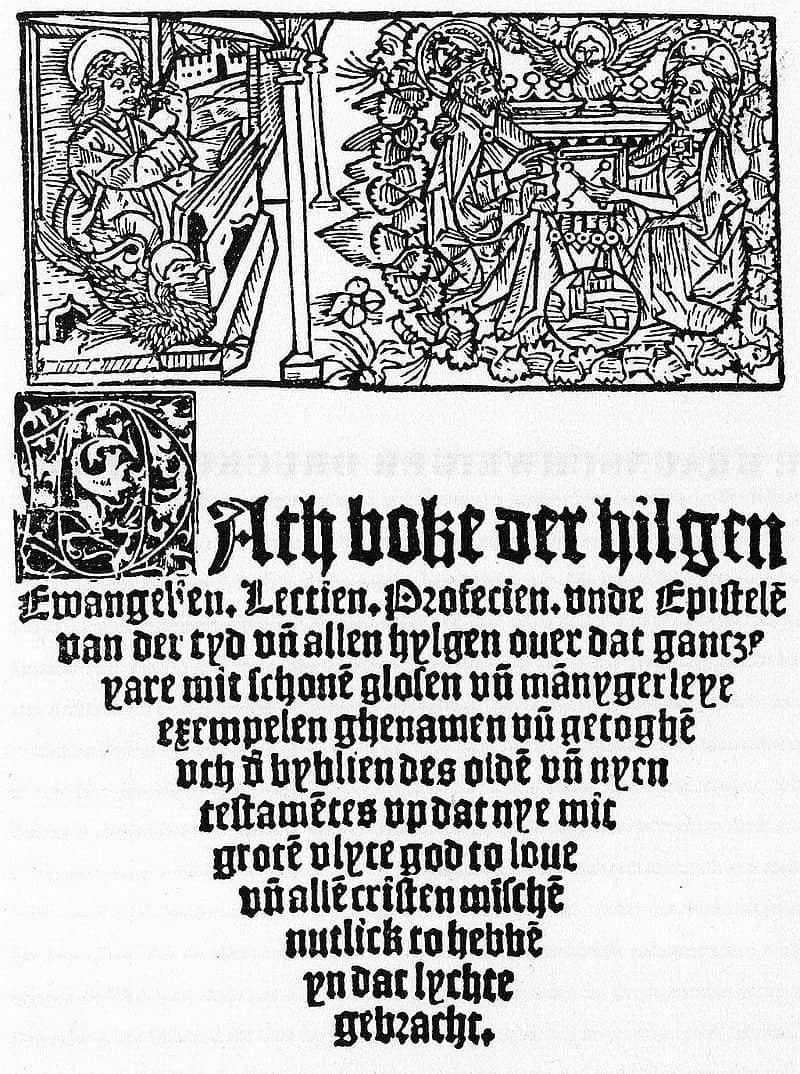 DAth boke der hilgen
Ewangelien. Lectien. Profecien. vnde Epistelē
van der tyd vn̄ allen hylgen ouer dat gantze
yare mit schonē glosen vn̄ mānygerleye
exempelen ghenamen vn̄ getoghē
vth d̄ byblien des oldē vn̄ nyen
testamētes vp dat nye mit
grotē vlyte god to loue
vn̄ allē cristen mīschē
nutlick to hebbē
yn dat lychte
gebracht.